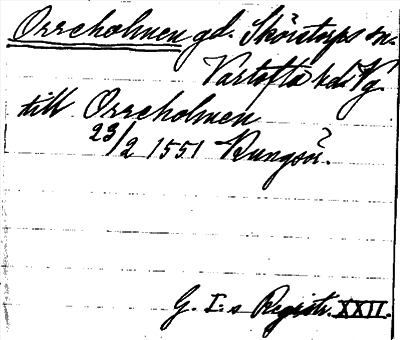 Orreholmen gd. Skörstorps sn.
Vartofta hd. Vg.
till Orreholmen
23/2 1551 Kungsör.
G. I:s Registr. XXII.